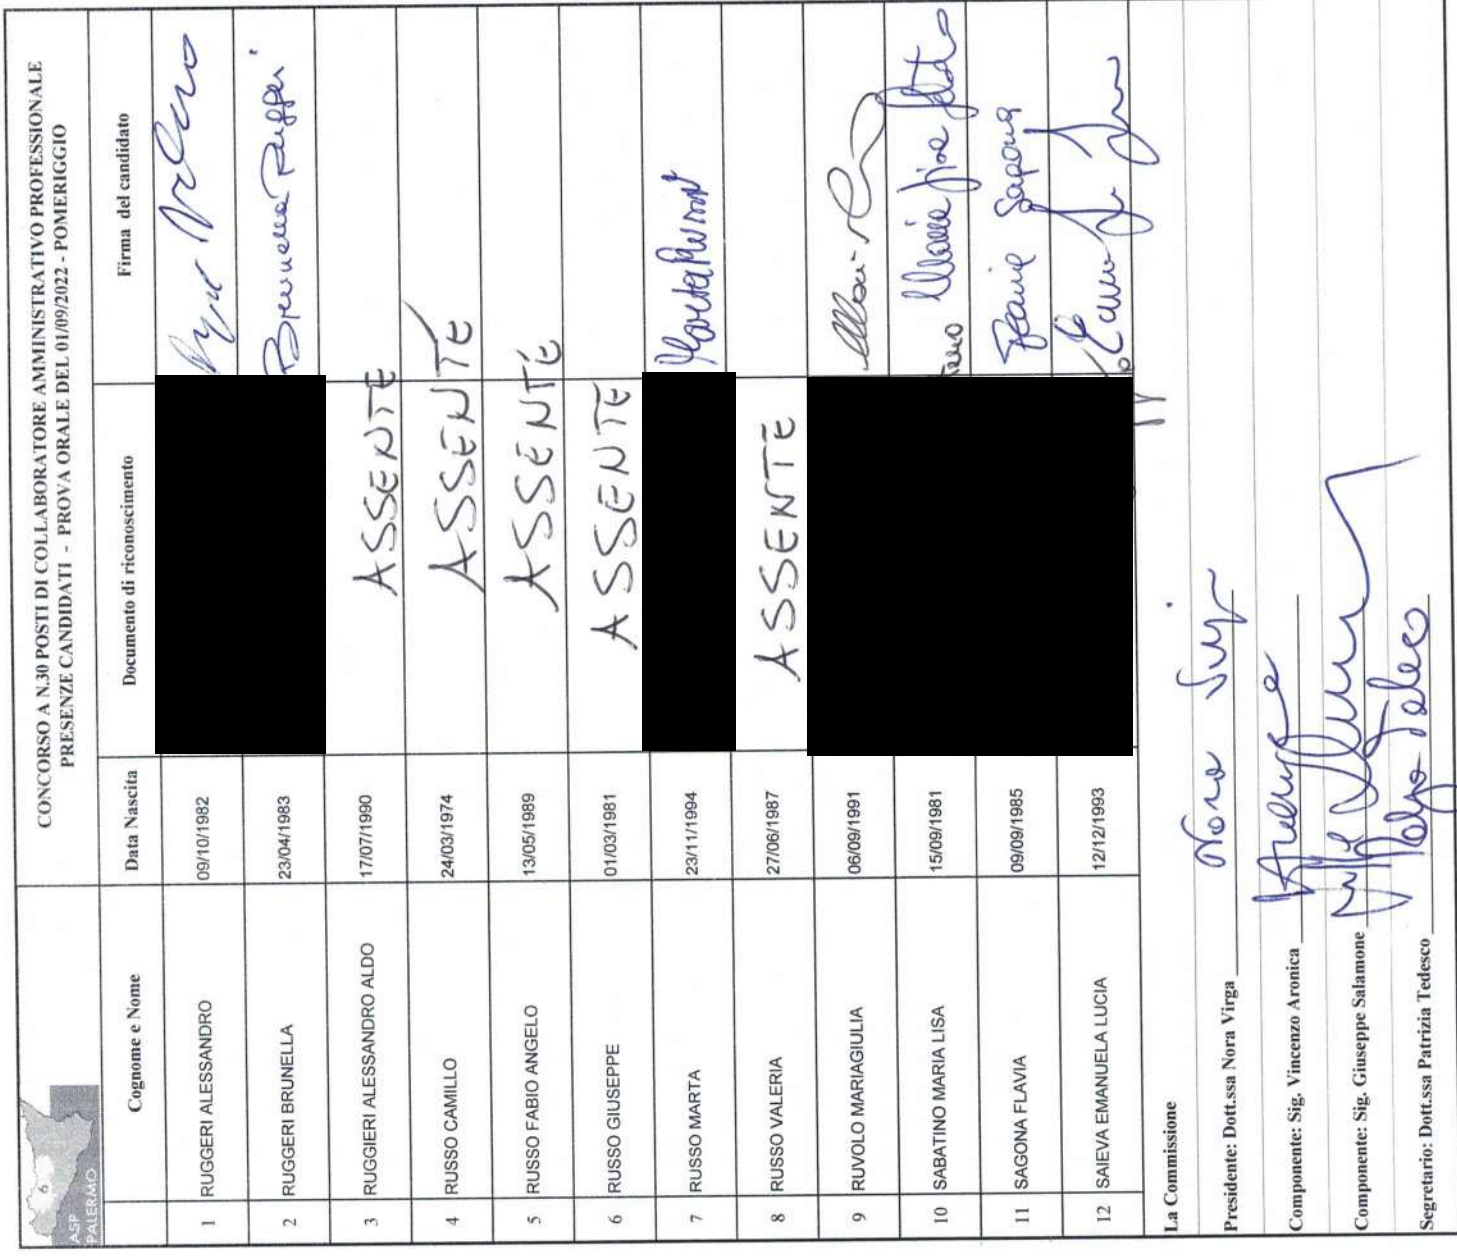 CONCORSO A N.30 POSTI DI COLLABORATORE AMMINISTRATIVO PROFESSIONALE
PRESENZE CANDIDATI - PROVA ORALE DEL 01/09/2022 - POMERIGGIO
6
ASP
PALERMO
Cognome e Nome Data Nascita Documento di riconoscimento Firma del candidato
1 RUGGERI ALESSANDRO 09/10/1982
2 RUGGERI BRUNELLA 23/04/1983 Brunella Ruggeri
3 RUGGIERI ALESSANDRO ALDO 17/07/1990 ASSENTE
4 RUSSO CAMILLO 24/03/1974 ASSENTE
5 RUSSO FABIO ANGELO 13/05/1989 ASSENTE
6 RUSSO GIUSEPPE 01/03/1981 ASSENTE
7 RUSSO MARTA 23/11/1994 Marta Russo
8 RUSSO VALERIA 27/06/1987 ASSENTE
9 RUVOLO MARIAGIULIA 06/09/1991
10 SABATINO MARIA LISA 15/09/1981 Maria Lisa
11 SAGONA FLAVIA 09/09/1985 Flavia Sagona
12 SAIEVA EMANUELA LUCIA 12/12/1993
La Commissione
Presidente: Dott.ssa Nora Virga Nora Virga
Componente: Sig. Vincenzo Aronica
Componente: Sig. Giuseppe Salamone
Segretario: Dott.ssa Patrizia Tedesco